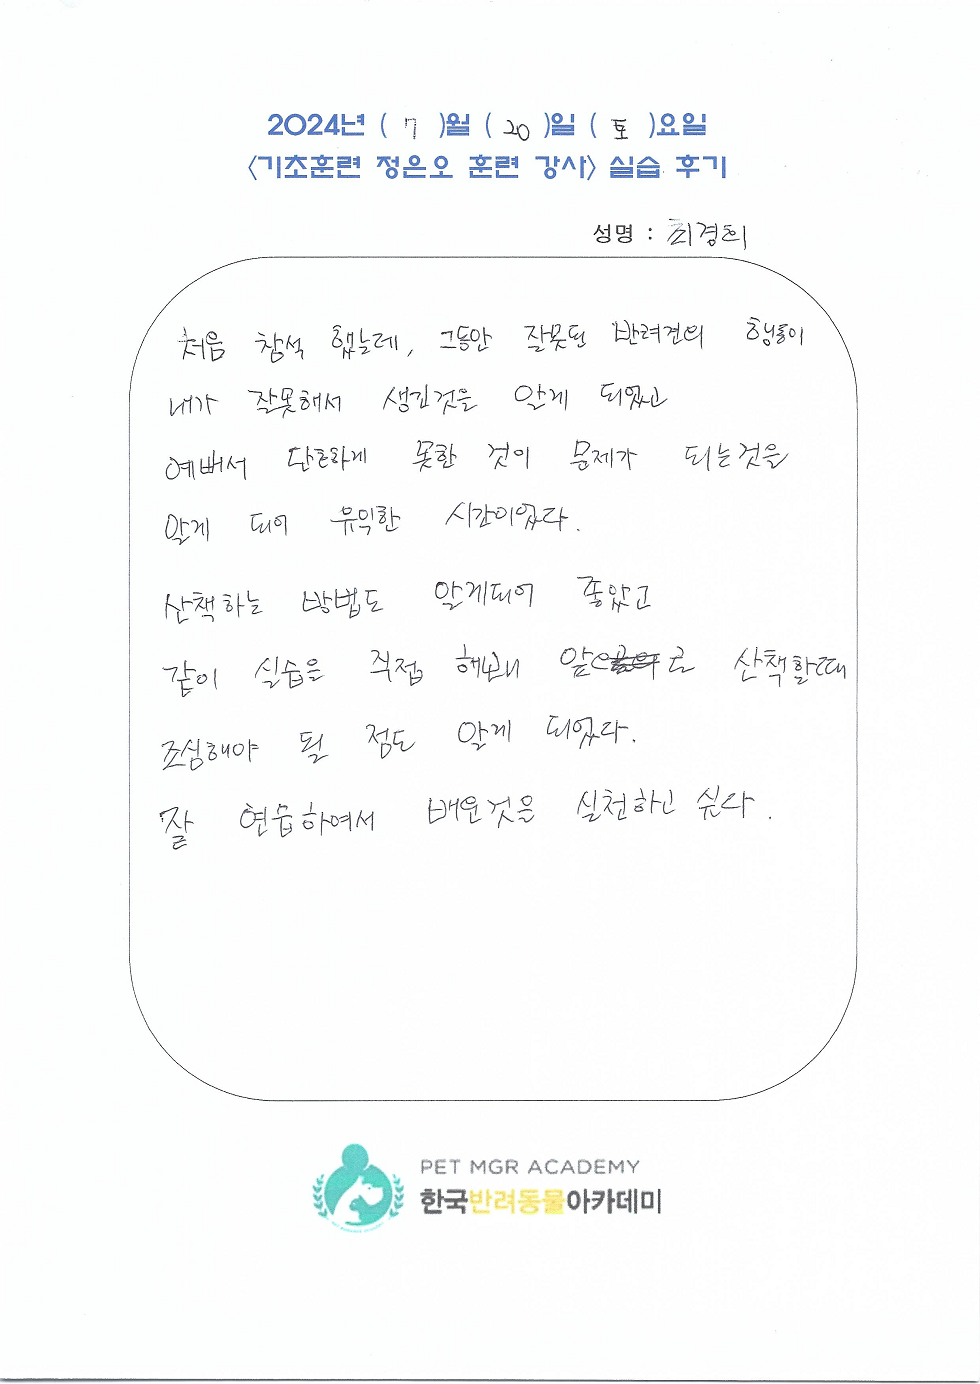 2024년 ( 7 )월 ( 20 )일 ( 토 )요일
<기초훈련 정은오 훈련 강사> 실습 후기
성명 : 최경희
처음 참석 했는데, 그동안 잘못된 반려견의 행동이
내가 잘못해서 생긴것을 알게 되었고
예뻐서 단호하게 못한 것이 문제가 되는것을
알게 되어 유익한 시간이었다.
산책하는 방법도 알게되어 좋았고
같이 실습을 직접 해보니 앞으로 산책할때
조심해야 될 점도 알게 되었다.
잘 연습하여서 배운것을 실천하고 싶다.
PET MGR ACADEMY
한국반려동물아카데미